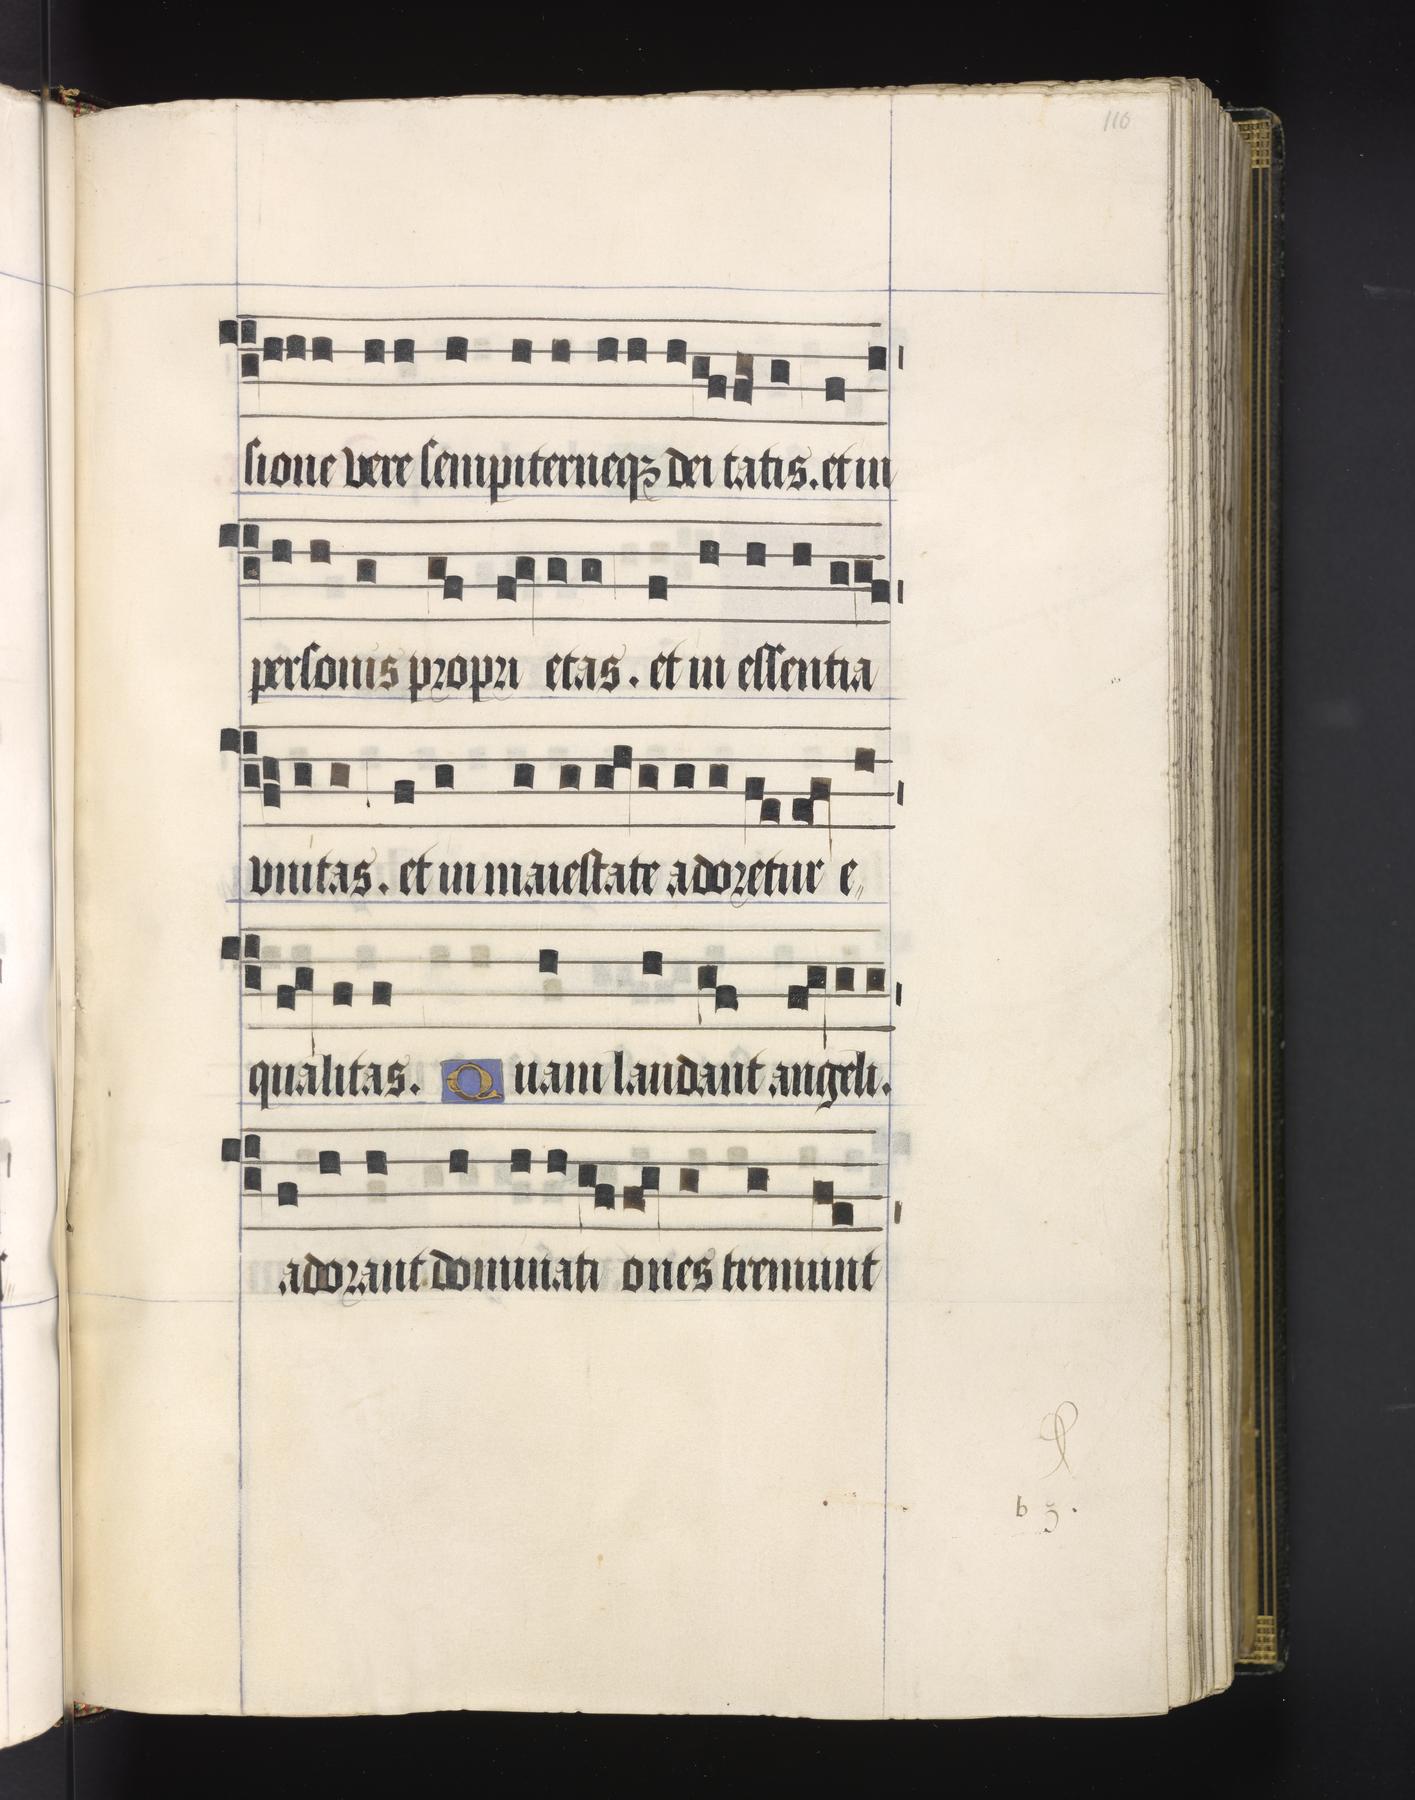 116
sione vere sempiterneqꝫ dei tatis. et in
personis propri etas. et in essentia
vnitas. et in maiestate adoretur e„
qualitas. Quam laudant angeli.
adorant dominati ones tremunt